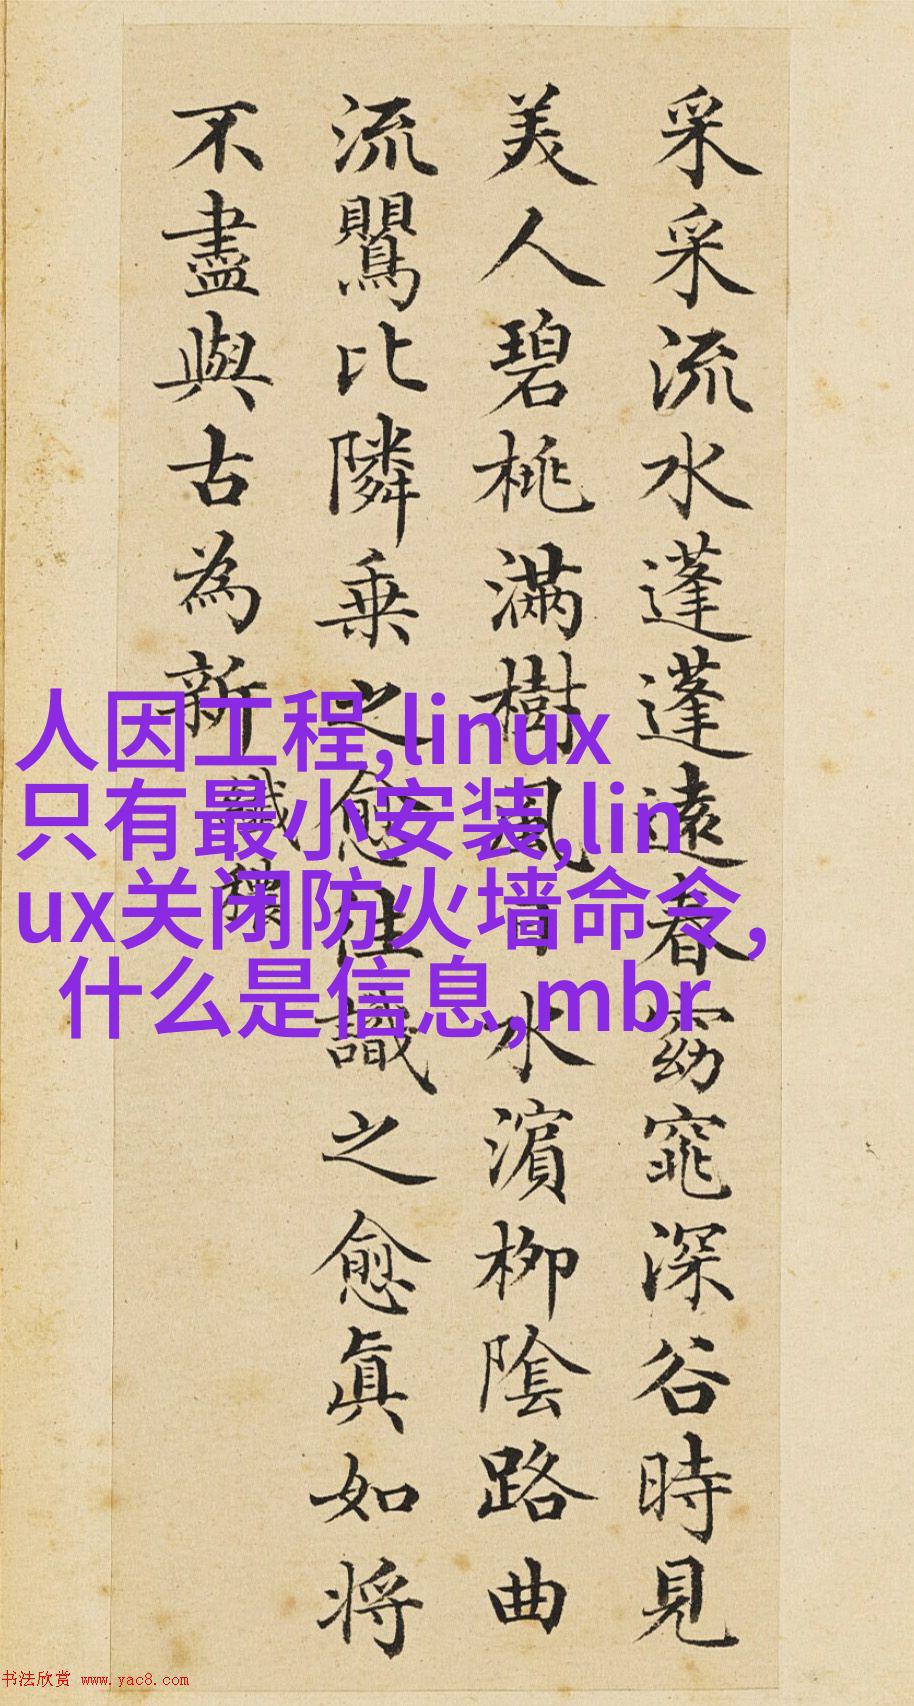 采采流水蓬蓬遠春窈窕深谷時見
美人碧桃滿樹風日水濱柳陰路曲
流鸎比隣乗之愈往識之愈眞如将
不盡與古為新 纖穠
人因工程,linux
只有最小安装,lin
ux关闭防火墙命令,
什么是信息,mbr
书法欣赏 www.yac8.com